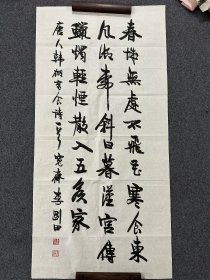 春城無處不飛花寒食東
風御柳斜日暮漢宮傳
蠟燭輕煙散入五侯家
唐人韓翃寒食詩一首 寬齋李剛田